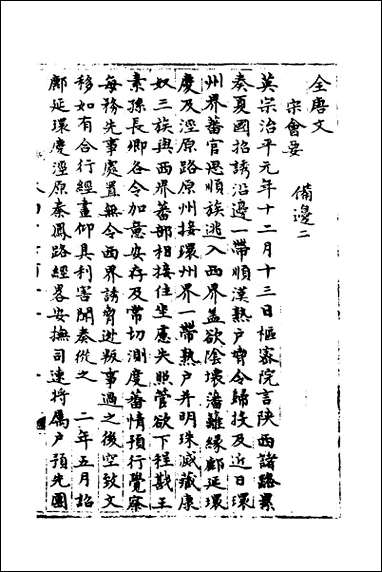 全唐文
宋會要
備邊二
英宗治平元年十二月十三日樞密院言陝西諸路累
奏夏國招誘沿邊一帶順漢熟户脅令歸投及近日環
州界蕃官思順族逃入西界益欲陰壞藩籬緣鄜延環
慶及涇原路原州接環州界一帶熟户并明珠滅藏康
奴三族與西界蕃部相接住坐慮失照管欲下程戡王
素孫長卿各令加意安存及常切測度蕃情預行覺察
每務先事處置無令西界誘脅逃叛事過之後空致文
移如有合行經畫仰具利害聞奏從之　二年五月詔
鄜延環慶涇原秦鳳路經畧安撫司速將屬户預先團